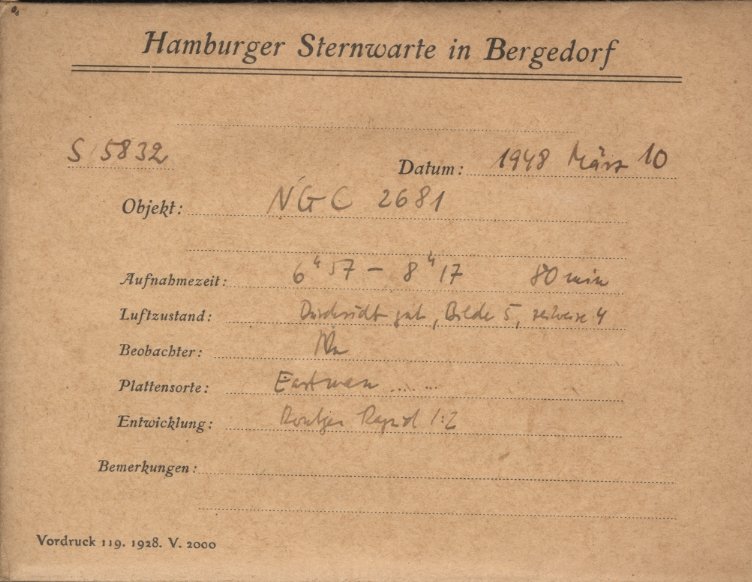 Hamburger Sternwarte in Bergedorf
S 5832
Datum: 1948 März 10
Objekt: NGC 2681
Aufnahmezeit: 6ʰ57 – 8ʰ17 80 min
Luftzustand: Durchsicht gut, Bilder 5, teilweise 4
Beobachter:
Plattensorte: Eastman ... ...
Entwicklung: Rapid 1:2
Bemerkungen:
Vordruck 119. 1928. V. 2000